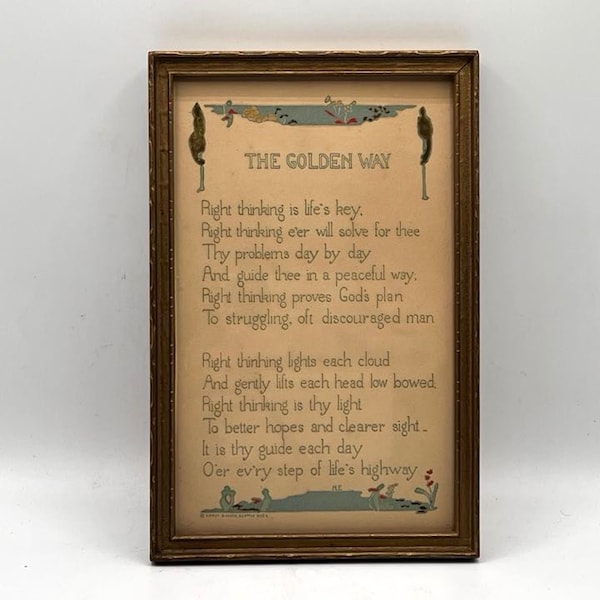 THE GOLDEN WAY
Right thinking is life's key,
Right thinking e'er will solve for thee
Thy problems day by day
And guide thee in a peaceful way;
Right thinking proves God's plan
To struggling, oft discouraged man
Right thinhing lights each cloud
And gently lifts each head low bowed;
Right thinking is thy light
To better hopes and clearer sight_
It is thy guide each day
O'er ev'ry step of life's highway